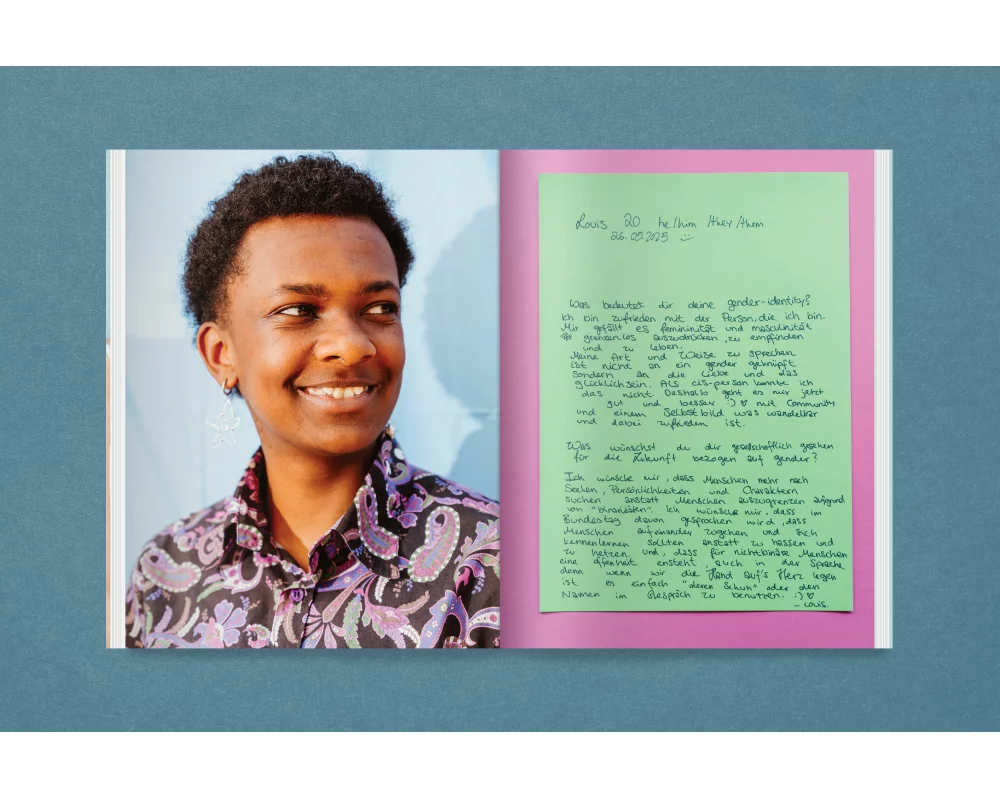 Louis 20 he/him /they/them
26.02.2025 :)
Was bedeutet dir deine gender-identity?
Ich bin zufrieden mit der Person, die ich bin.
Mir gefällt es femininität und masculinität
grenzenlos auszudrücken, zu empfinden
und zu leben.
Meine Art und Weise zu sprechen
ist nicht an ein gender geknüpft
sondern an die Liebe und das
glücklichsein. Als cis-person kannte ich
das nicht. Deshalb geht es mir jetzt
gut und besser :) ♡ mit Community
und einem Selbstbild was wandelbar
und dabei zufrieden ist.
Was wünschst du dir gesellschaftlich gesehen
für die Zukunft bezogen auf gender?
Ich wünsche mir, dass Menschen mehr nach
Seelen, Persönlichkeiten und Charaktern
suchen anstatt Menschen auszugrenzen aufgrund
von "binaritäten". Ich wünsche mir, dass im
Bundestag davon gesprochen wird, dass
Menschen aufeinander zugehen und sich
kennenlernen sollten anstatt zu hassen und
zu hetzen. und, dass für nichtbinäre Menschen
eine offenheit ensteht auch in der Sprache
denn wenn wir die Hand auf's Herz legen
ist es einfach "deren Schuh" oder den
Namen im Gespräch zu benutzen. :) ♡
– Louis.